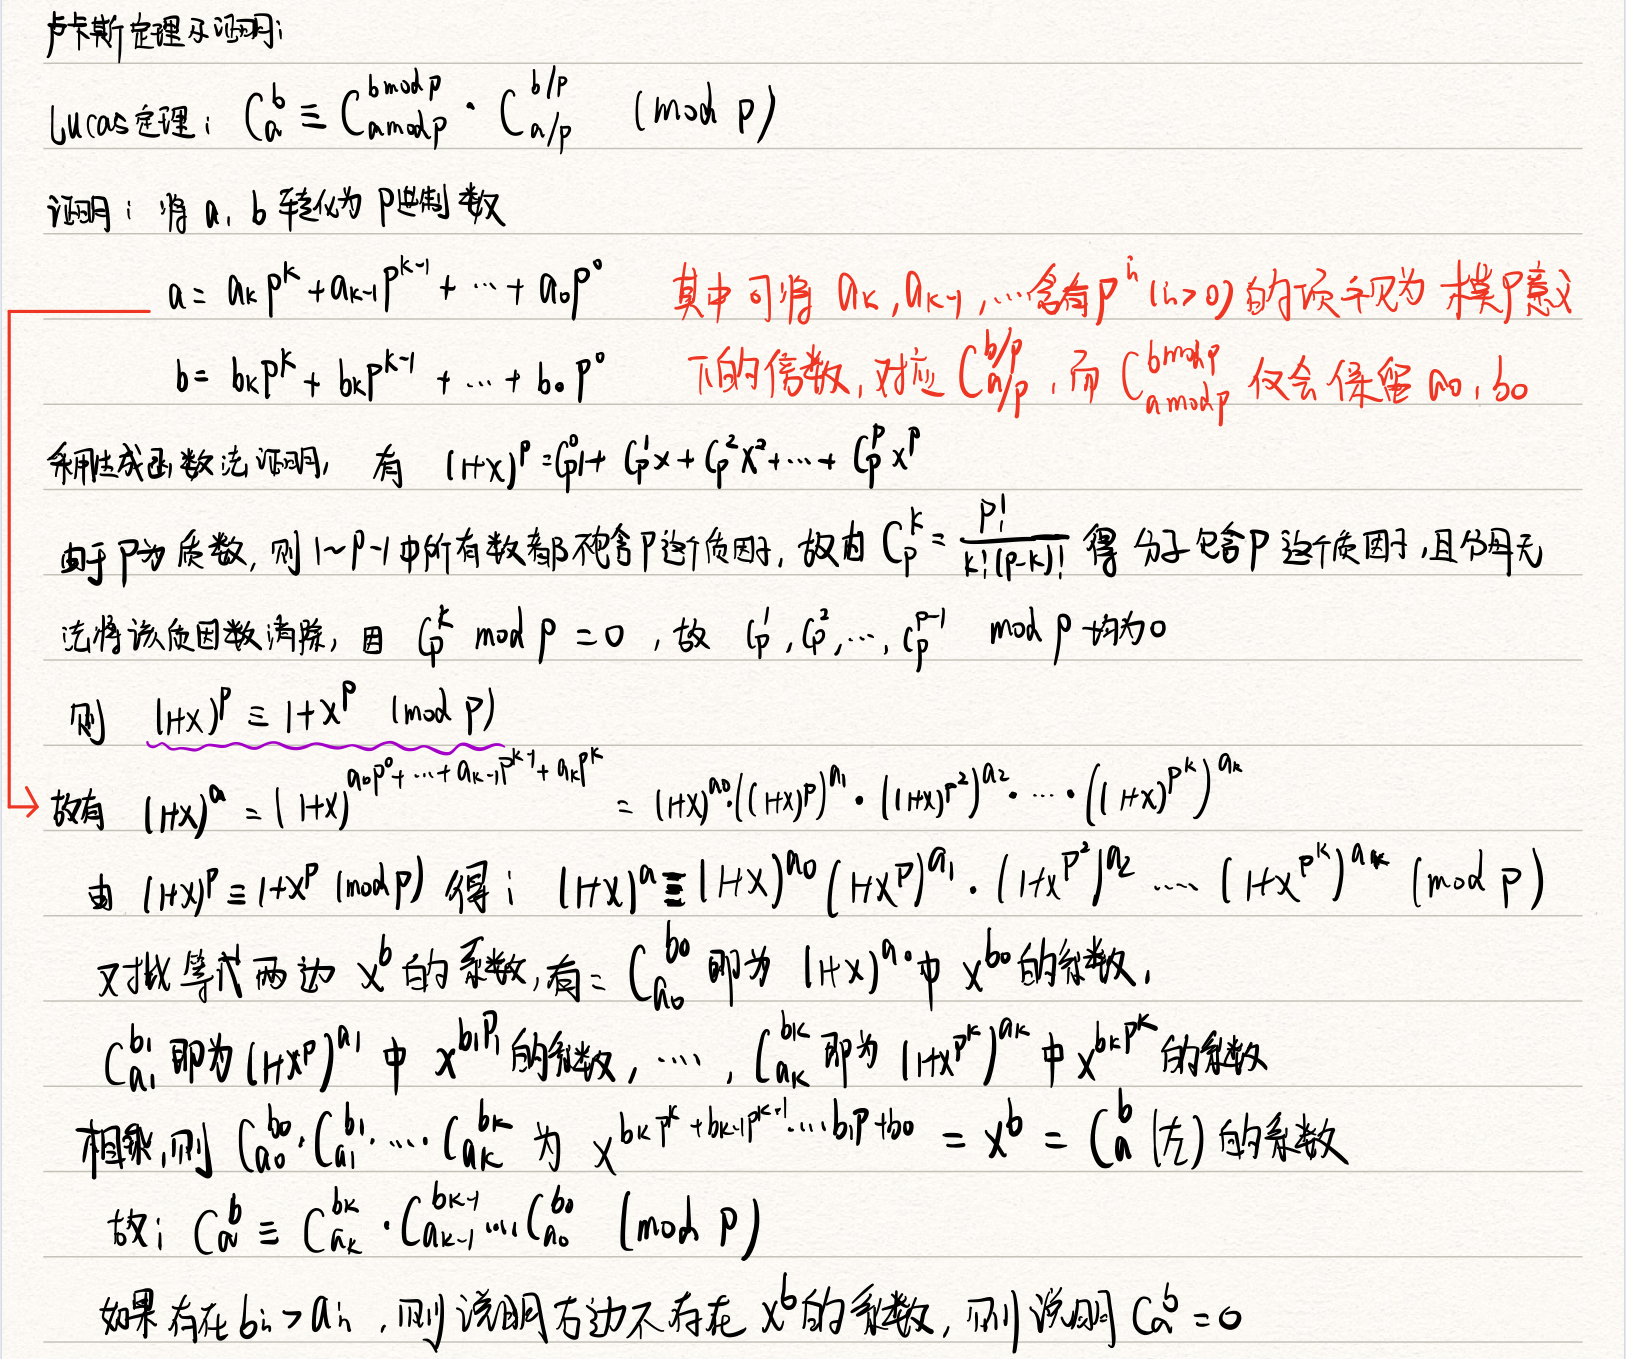 卢卡斯定理及证明:
Lucas定理: C_a^b ≡ C_{a mod p}^{b mod p} · C_{a/p}^{b/p} (mod p)
证明: 将 a, b 转化为 P进制数
a = a_k p^k + a_{k-1} p^{k-1} + … + a_0 p^0 其中可将 a_k, a_{k-1}, …含有 p^i (i>0) 的项视为模P意义
b = b_k p^k + b_k p^{k-1} + … + b_0 p^0 下的倍数, 对应 C_{a/p}^{b/p}, 而 C_{a mod p}^{b mod p} 仅会保留 a_0, b_0
利用生成函数法证明, 有 (1+x)^p = C_p^0 1 + C_p^1 x + C_p^2 x^2 + … + C_p^p x^p
由于P为质数, 则 1~P-1中所有数都不包含P这个质因子, 故由 C_p^k = p!/(k!(p-k)!) 得 分子包含P这个质因子, 且分母无
法将该质因数消除, 因 C_p^k mod p = 0, 故 C_p^1, C_p^2, …, C_p^{p-1} mod p 均为0
则 (1+x)^p ≡ 1+x^p (mod p)
故有 (1+x)^a = (1+x)^{a_0 p^0 + … + a_{k-1} p^{k-1} + a_k p^k} = (1+x)^{a_0} · ((1+x)^p)^{a_1} · ((1+x)^{p^2})^{a_2} · … · ((1+x)^{p^k})^{a_k}
由 (1+x)^p ≡ 1+x^p (mod p) 得: (1+x)^a ≡ (1+x)^{a_0} (1+x^p)^{a_1} · (1+x^{p^2})^{a_2} …. (1+x^{p^k})^{a_k} (mod p)
对比等式两边 x^b 的系数, 有: C_{a_0}^{b_0} 即为 (1+x)^{a_0} 中 x^{b_0} 的系数,
C_{a_1}^{b_1} 即为 (1+x^p)^{a_1} 中 x^{b_1 p_1} 的系数, …, C_{a_k}^{b_k} 即为 (1+x^{p^k})^{a_k} 中 x^{b_k p^k} 的系数
相乘, 则 C_{a_0}^{b_0} · C_{a_1}^{b_1} · … · C_{a_k}^{b_k} 为 x^{b_k p^k + b_{k-1} p^{k-1} … b_1 p + b_0} = x^b = C_a^b (左) 的系数
故: C_a^b ≡ C_{a_k}^{b_k} · C_{a_{k-1}}^{b_{k-1}} … C_{a_0}^{b_0} (mod p)
如果存在 b_i > a_i, 则说明右边不存在 x^b 的系数, 则说明 C_a^b = 0